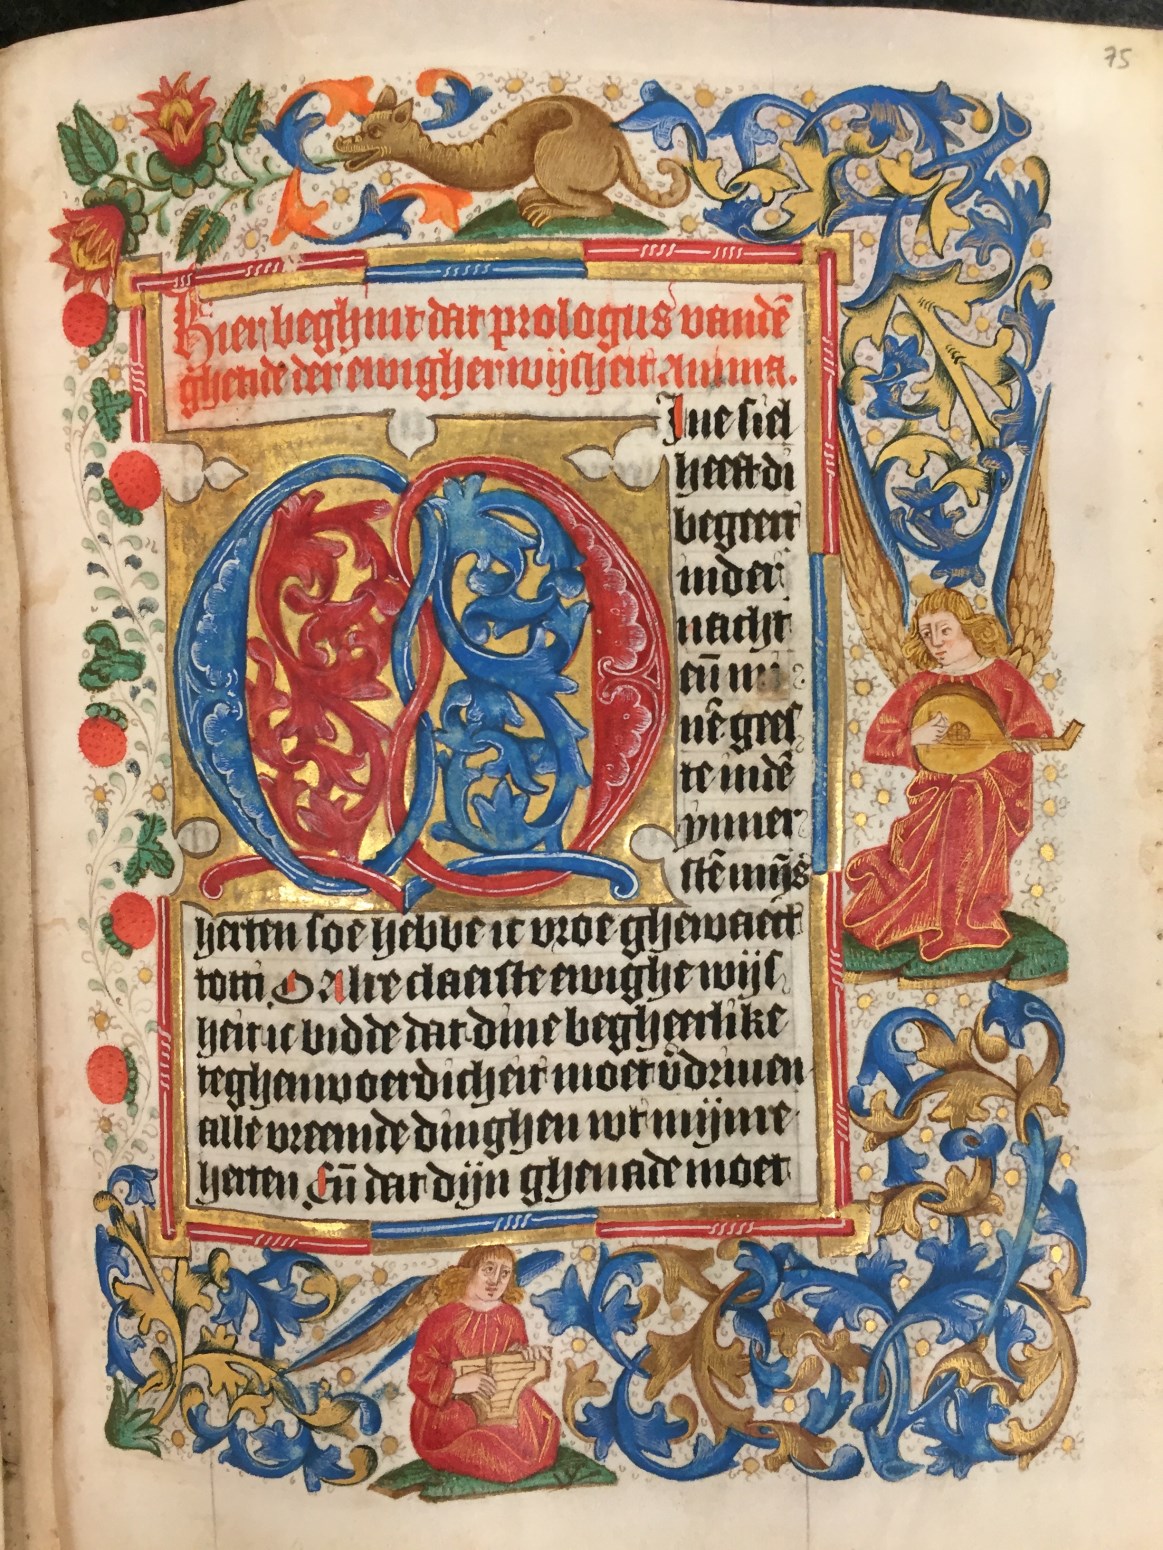 75
Hier beghint dat prologus vandē
ghetide der ewigher wijsheit Anima.
Mine siel
heeft di
begeert
inder
nacht
eñ mi
nē gees
te indē
ynner
stē mijs
herten soe hebbe ic vroe ghewaect
totti O Alre claerste ewighe wijs
heit ic bidde dat dine begheerlike
teghenwoerdicheit moet v̄driuen
alle vreemde dinghen wt mijnre
herten Eñ dat dijn ghenade moet